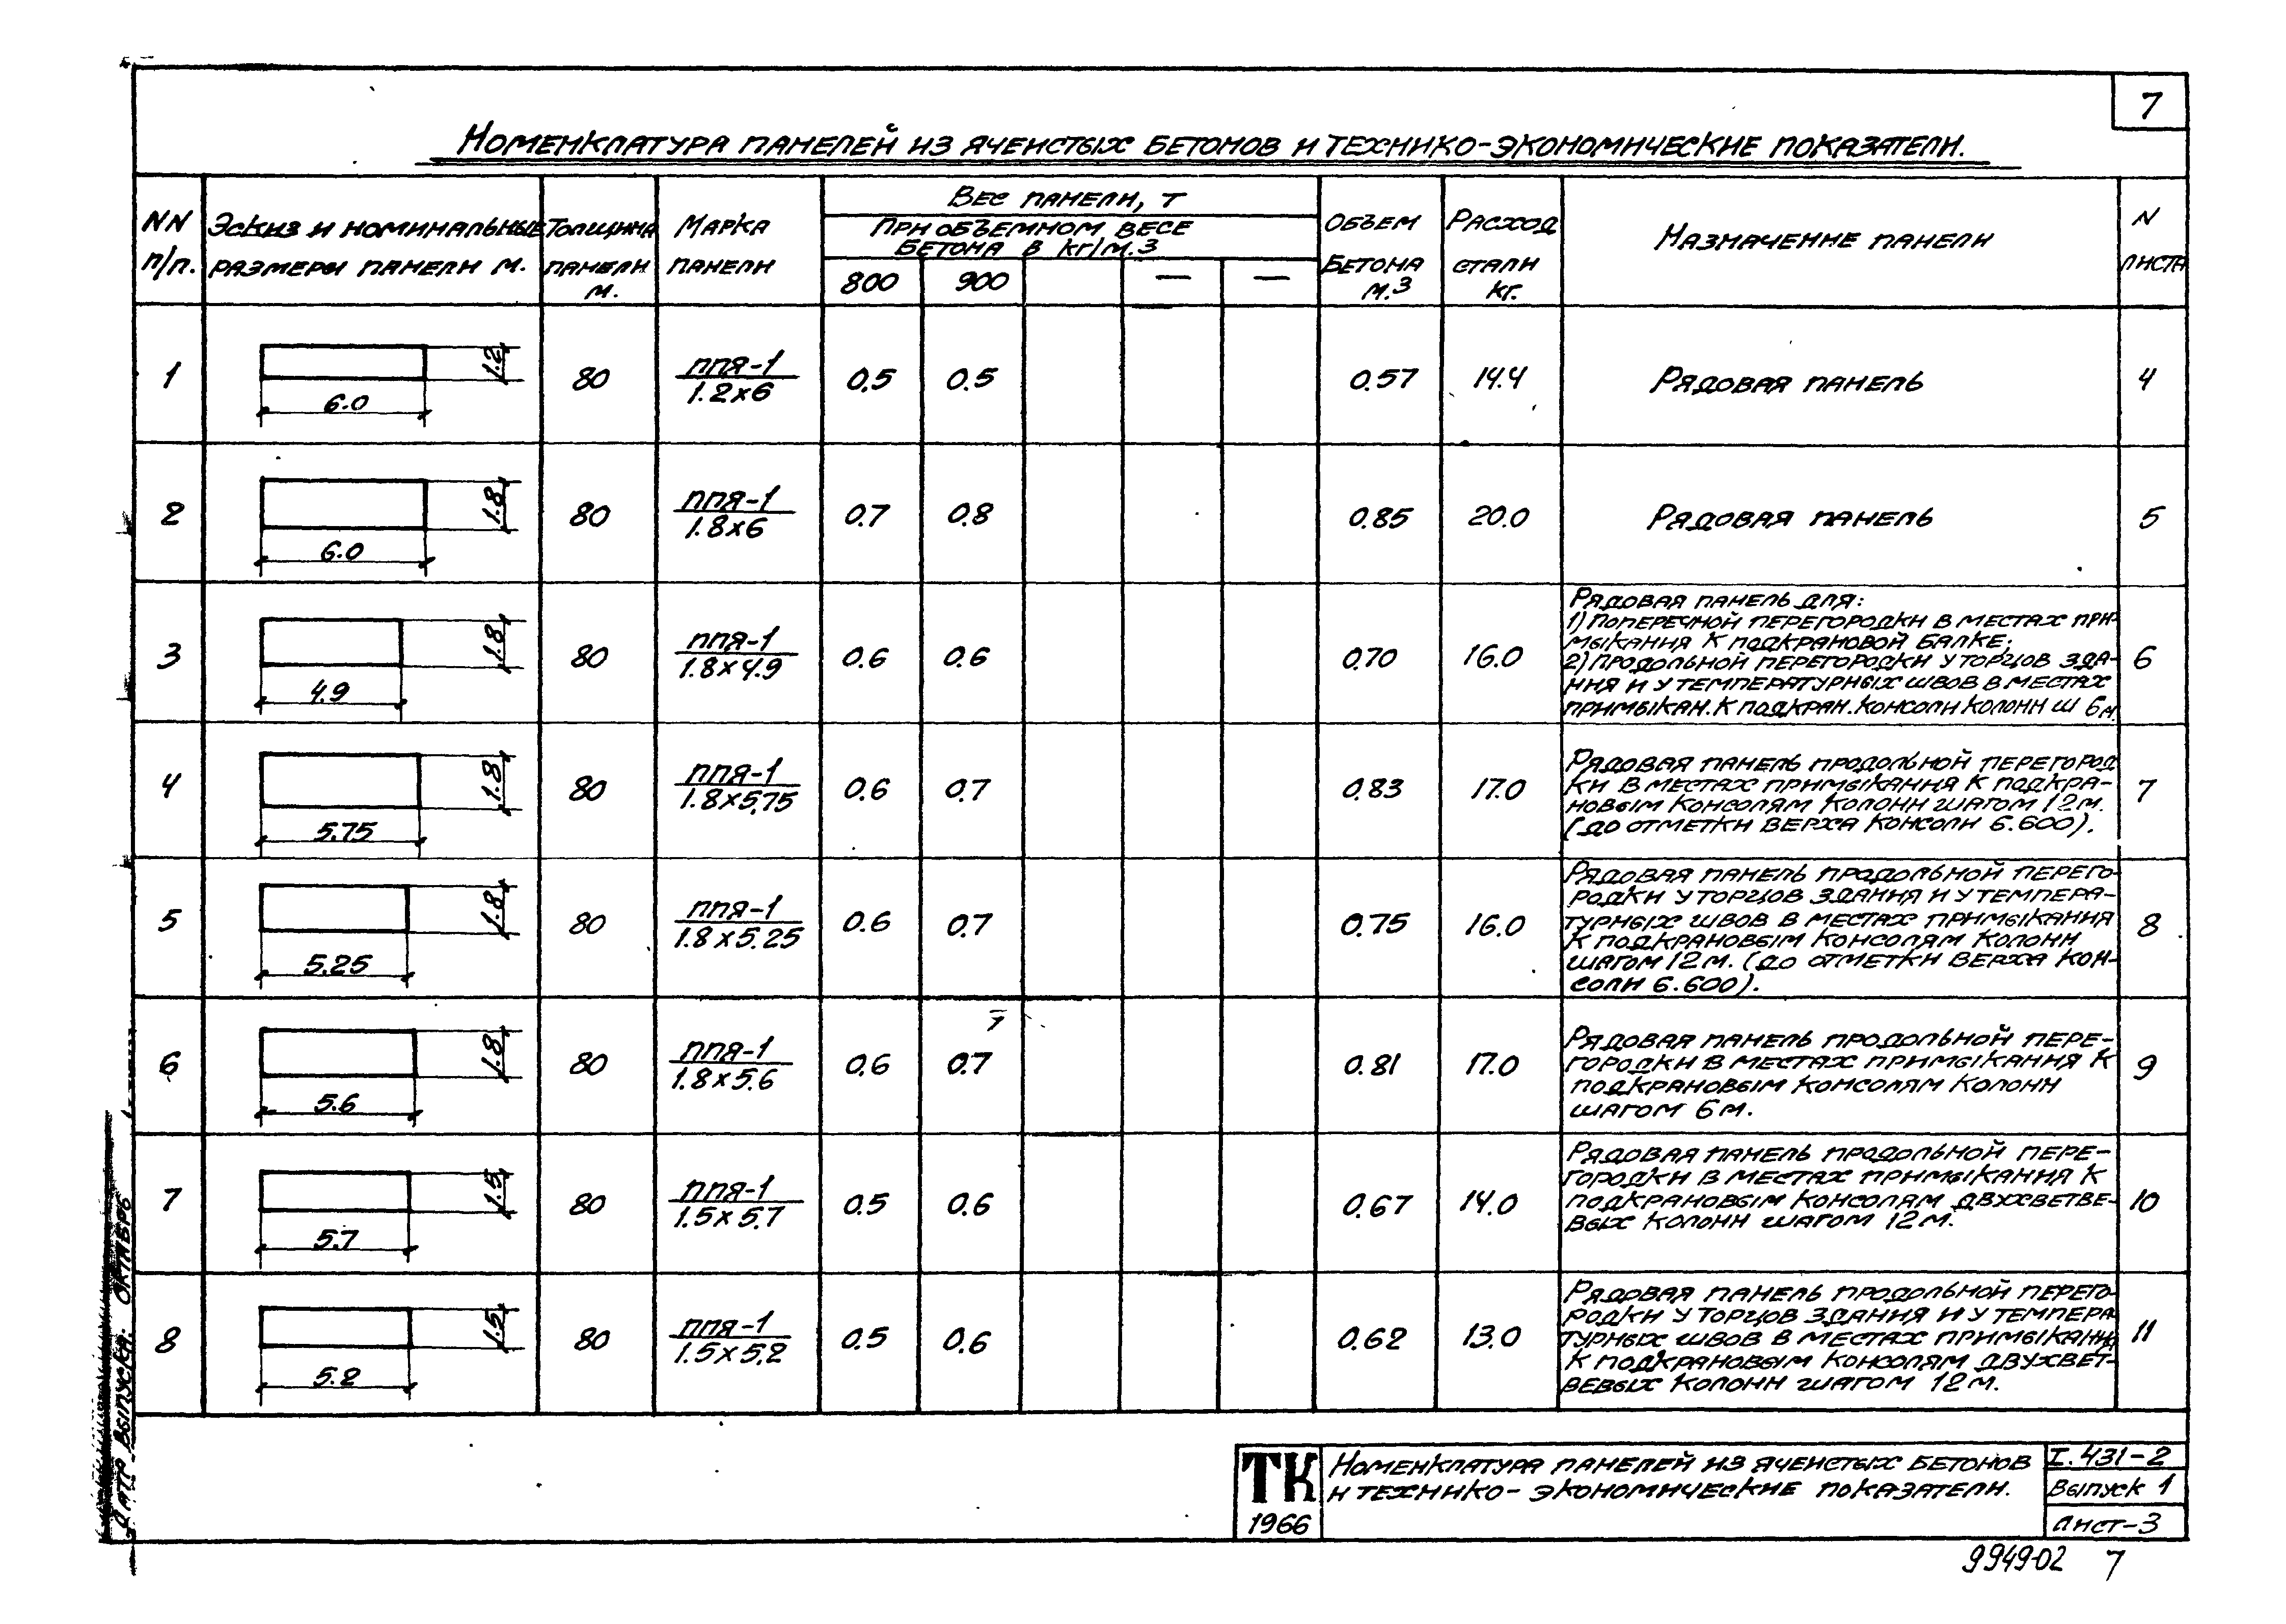 7
Номенклатура панелей из ячеистых бетонов и технико-экономические показатели.
NN п/п.
Эскиз и номинальные размеры панели м.
Толщина панели м.
Марка панели
Вес панели, т
При объемном весе
бетона в кг/м.3
800 900 — —
Объем бетона м.3
Расход стали кг.
Назначение панели
N листа
1
1.2
6.0
80
ППЯ-1
1.2×6
0.5 0.5
0.57 14.4
Рядовая панель
4
2
1.8
6.0
80
ППЯ-1
1.8×6
0.7 0.8
0.85 20.0
Рядовая панель
5
3
1.8
4.9
80
ППЯ-1
1.8×4.9
0.6 0.6
0.70 16.0
Рядовая панель для:
1) Поперечной перегородки в местах при-
мыкания к подкрановой балке;
2) Продольной перегородки у торцов зда-
ния и у температурных швов в местах
примыкан. к подкран. консоли колонн ш 6м.
6
4
1.8
5.75
80
ППЯ-1
1.8×5,75
0.6 0.7
0.83 17.0
Рядовая панель продольной перегород
ки в местах примыкания к подкра-
новым консолям колонн шагом 12м.
(до отметки верха консоли 6.600).
7
5
1.8
5.25
80
ППЯ-1
1.8×5.25
0.6 0.7
0.75 16.0
Рядовая панель продольной перего-
родки у торцов здания и у темпера-
турных швов в местах примыкания
к подкрановым консолям колонн
шагом 12м. (до отметки верха кон-
соли 6.600).
8
6
1.8
5.6
80
ППЯ-1
1.8×5.6
0.6 0.7
0.81 17.0
Рядовая панель продольной пере-
городки в местах примыкания к
подкрановым консолям колонн
шагом 6м.
9
7
1.5
5.7
80
ППЯ-1
1.5×5,7
0.5 0.6
0.67 14.0
Рядовая панель продольной пере-
городки в местах примыкания к
подкрановым консолям двухветве-
вых колонн шагом 12м.
10
8
1.5
5.2
80
ППЯ-1
1.5×5,2
0.5 0.6
0.62 13.0
Рядовая панель продольной перего-
родки у торцов здания и у темпера
турных швов в местах примыкания
к подкрановым консолям двухвет-
вевых колонн шагом 12м.
11
Дата выпуска: октябрь
ТК
1966
Номенклатура панелей из ячеистых бетонов
и технико-экономические показатели.
I.431-2
Выпуск 1
Лист-3
9949-02 7